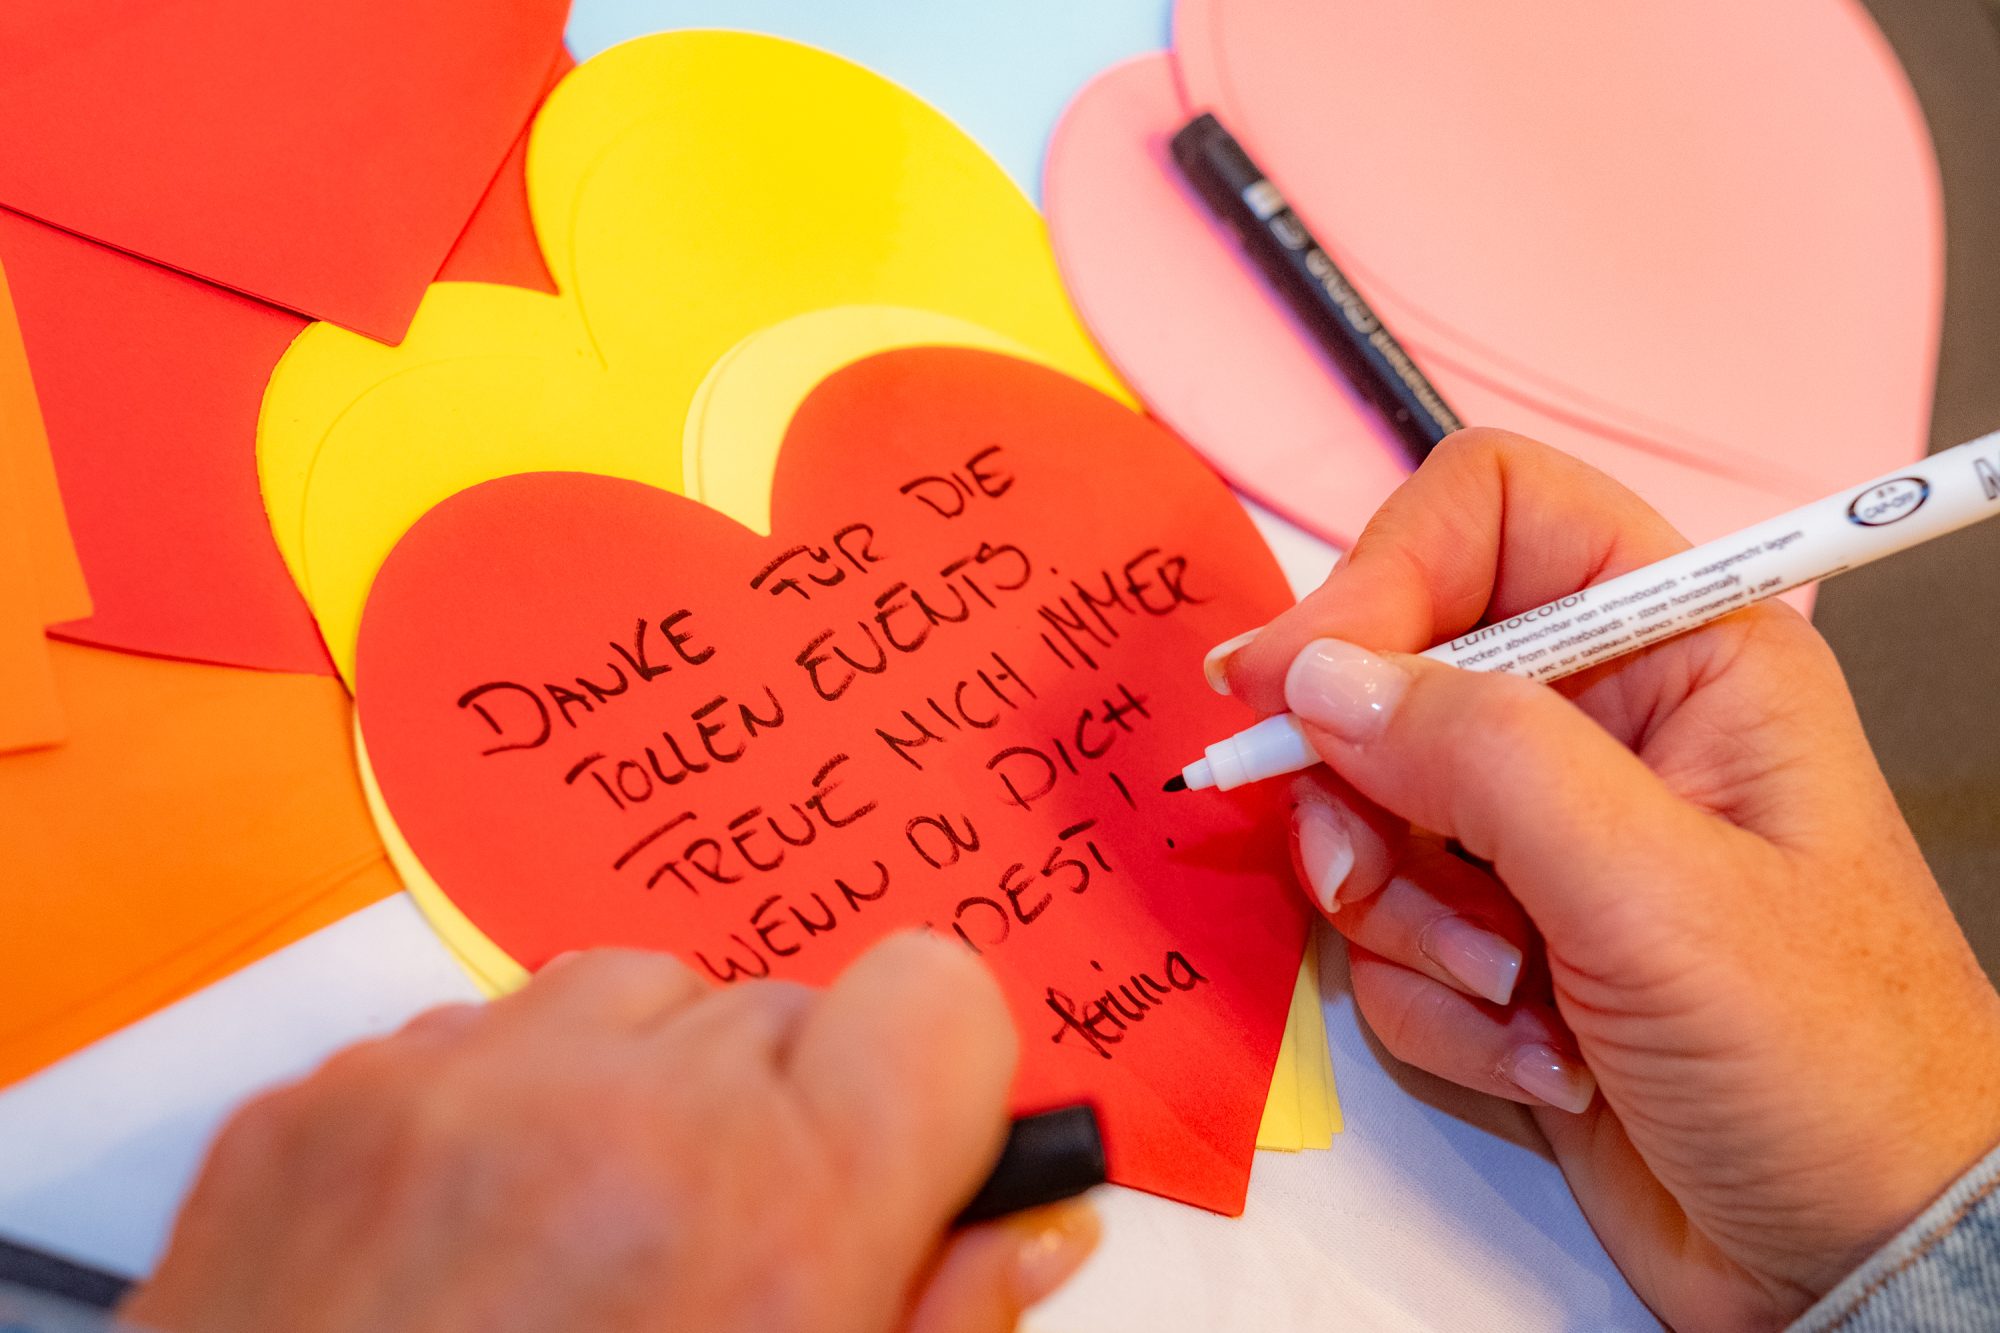 DANKE FÜR DIE
TOLLEN EVENTS.
FREUE MICH IMMER
WENN DU DICH
DEST!
Petrina
permanent
Lumocolor
trocken abwischbar von Whiteboards • waagerecht lagern
wipe from whiteboards • store horizontally
à sec sur tableaux blancs • conserver à plat
CAP-OFF